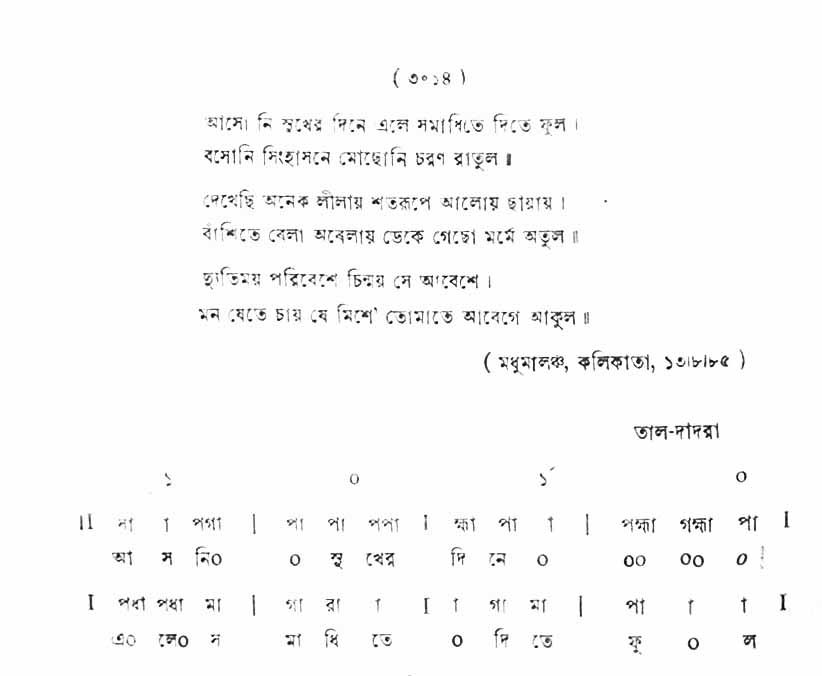 ( ৩০১৪ )
আসো নি সুখের দিনে এলে সমাধিতে দিতে ফুল ।
বসোনি সিংহাসনে মোছোনি চরণ রাতুল ॥
দেখেছি অনেক লীলায় শতরূপে আলোয় ছায়ায় ।
বাঁশিতে বেলা অবেলায় ডেকে গেছো মর্মে অতুল ॥
দ্যুতিময় পরিবেশে চিন্ময় সে আবেশে ।
মন যেতে চায় যে মিশে' তোমাতে আবেগে আকুল ॥
( মধুমালঞ্চ, কলিকাতা, ১৩।৮।৮৫ )
তাল-দাদরা
১ ০ ১´ ০
II সা া পগা | পা পা পপা I হ্মা পা া | পহ্মা গহ্মা পা I
আ স নি০ ০ সু খের দি নে ০ ০০ ০০ ০
I পধা পধা মা | গা রা া I া গা মা | পা া া I
এ০ লে০ স মা ধি তে ০ দি তে ফু ০ ল